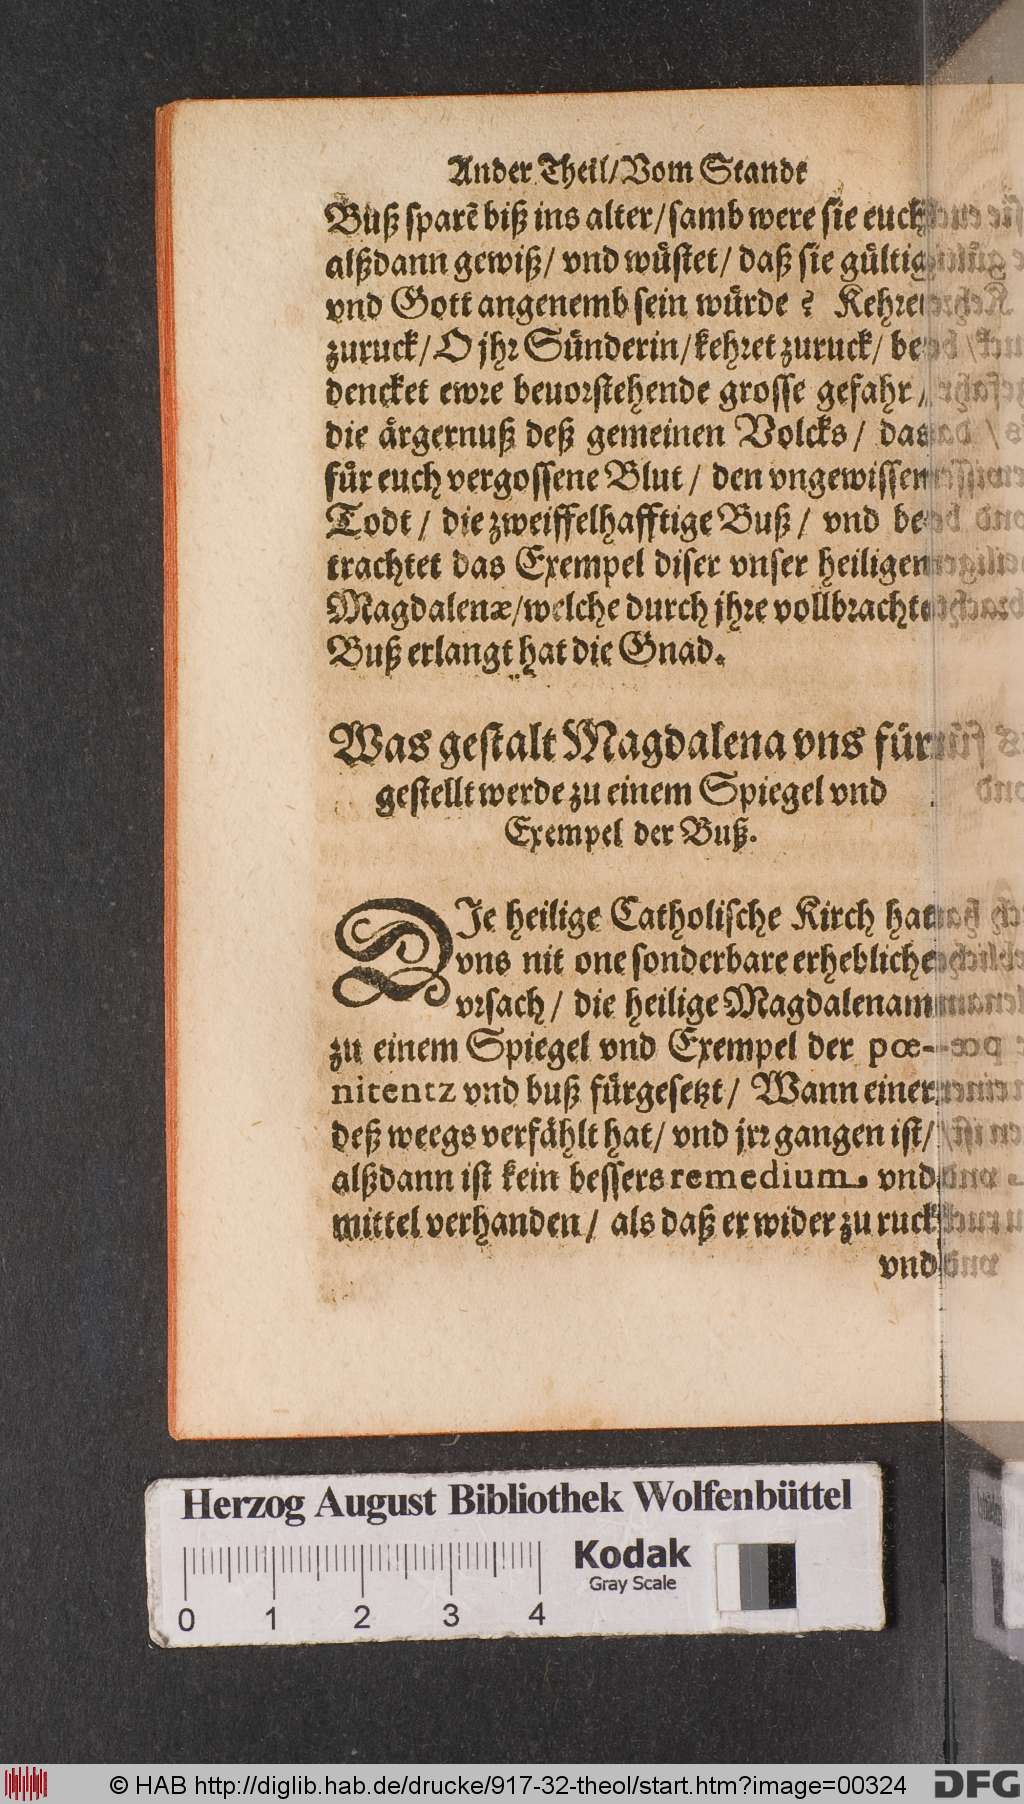 Ander Theil/Vom Stande
Buß sparẽ biß ins alter/samb were sie euch
alßdann gewiß/ vnd wuͤstet/ daß sie guͤltig
vnd Gott angenemb sein wuͤrde ? Kehret
zuruck/O jhr Suͤnderin/kehret zuruck/ be
dencket ewre beuorstehende grosse gefahr/
die aͤrgernuß deß gemeinen Volcks/ das
fuͤr euch vergossene Blut/ den vngewissen
Todt/ die zweiffelhafftige Buß/ vnd be-
trachtet das Exempel diser vnser heiligen
Magdalenæ/welche durch jhre vollbrachte
Buß erlangt hat die Gnad.
Was gestalt Magdalena vns fuͤr
gestellt werde zu einem Spiegel vnd
Exempel der Buß.
DIe heilige Catholische Kirch hat
vns nit one sonderbare erhebliche
vrsach/ die heilige Magdalenam
zu einem Spiegel vnd Exempel der pœ-
nitentz vnd buß fuͤrgesetzt/ Wann einer
deß weegs verfaͤhlt hat/ vnd jrr gangen ist/
alßdann ist kein bessers remedium. vnd
mittel verhanden/ als daß er wider zu ruck
vnd
Herzog August Bibliothek Wolfenbüttel
Kodak
Gray Scale
0 1 2 3 4
© HAB http://diglib.hab.de/drucke/917-32-theol/start.htm?image=00324
DFG